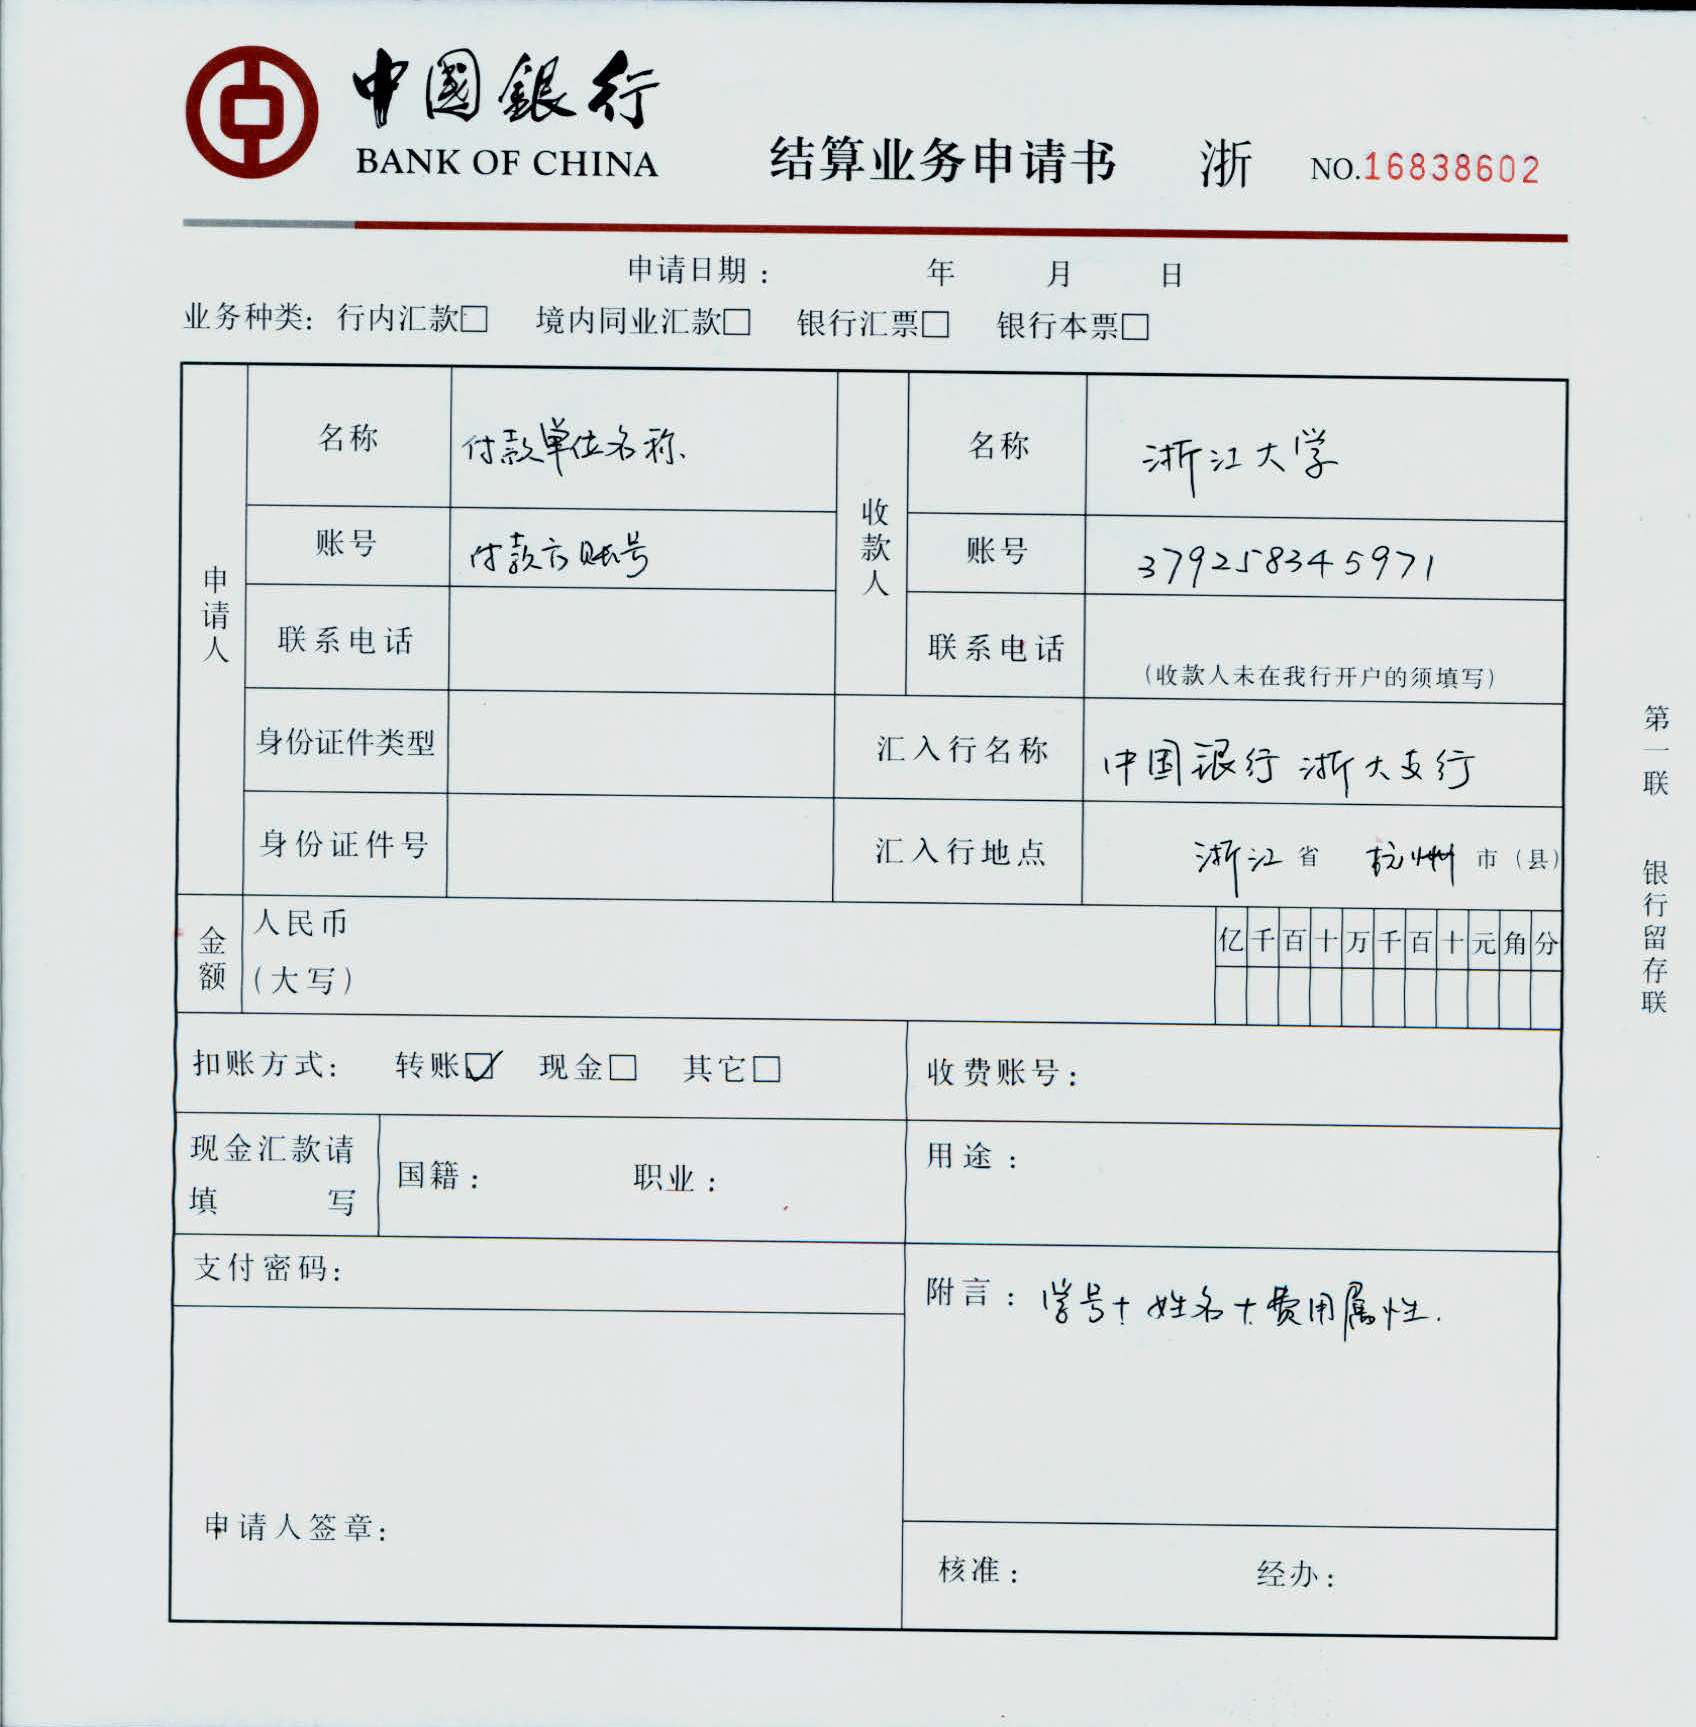 中國銀行
BANK OF CHINA
结算业务申请书 浙 NO.16838602
申请日期： 年 月 日
业务种类：行内汇款□ 境内同业汇款□ 银行汇票□ 银行本票□
申请人
名称 付款单位名称、
账号 付款方账号
联系电话
身份证件类型
身份证件号
收款人
名称 浙江大学
账号 379258345971
联系电话 （收款人未在我行开户的须填写）
汇入行名称 中国银行浙大支行
汇入行地点 浙江省 杭州市（县）
金额 人民币（大写）
亿千百十万千百十元角分
扣账方式： 转账☑ 现金□ 其它□
收费账号：
现金汇款请填写 国籍： 职业：
用途：
支付密码：
附言：学号+姓名+费用属性.
申请人签章：
核准： 经办：
第一联 银行留存联